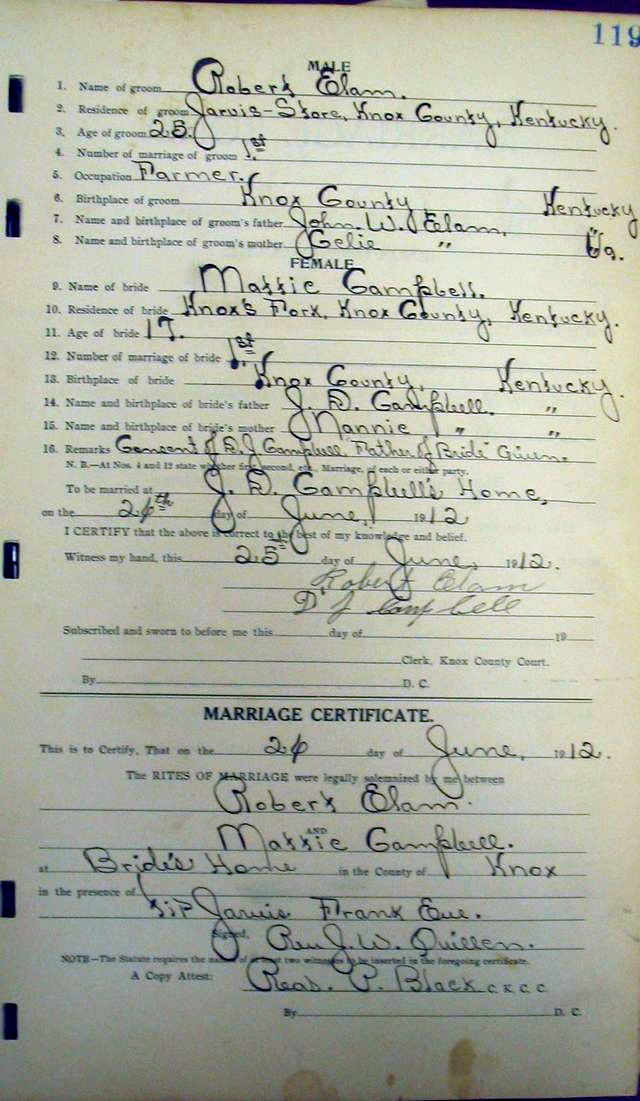 119
MALE
1. Name of groom Robert Elam.
2. Residence of groom Jarvis-Store, Knox County, Kentucky.
3. Age of groom 25.
4. Number of marriage of groom 1st
5. Occupation Farmer.
6. Birthplace of groom Knox County Kentucky
7. Name and birthplace of groom's father John. W. Elam. "
8. Name and birthplace of groom's mother " Va.
FEMALE
9. Name of bride Massie Campbell.
10. Residence of bride Knox's Fork, Knox County, Kentucky.
11. Age of bride 17.
12. Number of marriage of bride 1st
13. Birthplace of bride Knox County, Kentucky.
14. Name and birthplace of bride's father J. D. Campbell. "
15. Name and birthplace of bride's mother Nannie " "
16. Remarks Consent of D. J Campbell Father of Bride Given.
N. B.—At Nos. 4 and 12 state whether first, second, etc., Marriage, of each or either party.
To be married at J. D. Campbell's Home,
on the 26th day of June, 1912
I CERTIFY that the above is correct to the best of my knowledge and belief.
Witness my hand, this 25th day of June, 1912.
Robert Elam
D J Campbell
Subscribed and sworn to before me this day of 19
Clerk, Knox County Court.
By D. C.
MARRIAGE CERTIFICATE.
This is to Certify, That on the 26 day of June, 1912.
The RITES OF MARRIAGE were legally solemnized by me between
Robert Elam.
AND
Massie Campbell.
at Bride's Home in the County of Knox
in the presence of
Sip Jarvis Frank Eve.
Signed, Rev J. W. Quillen.
NOTE—The Statute requires the names of at least two witnesses to be inserted in the foregoing certificate.
A Copy Attest: Read. P. Black C. K. C. C.
By D. C.